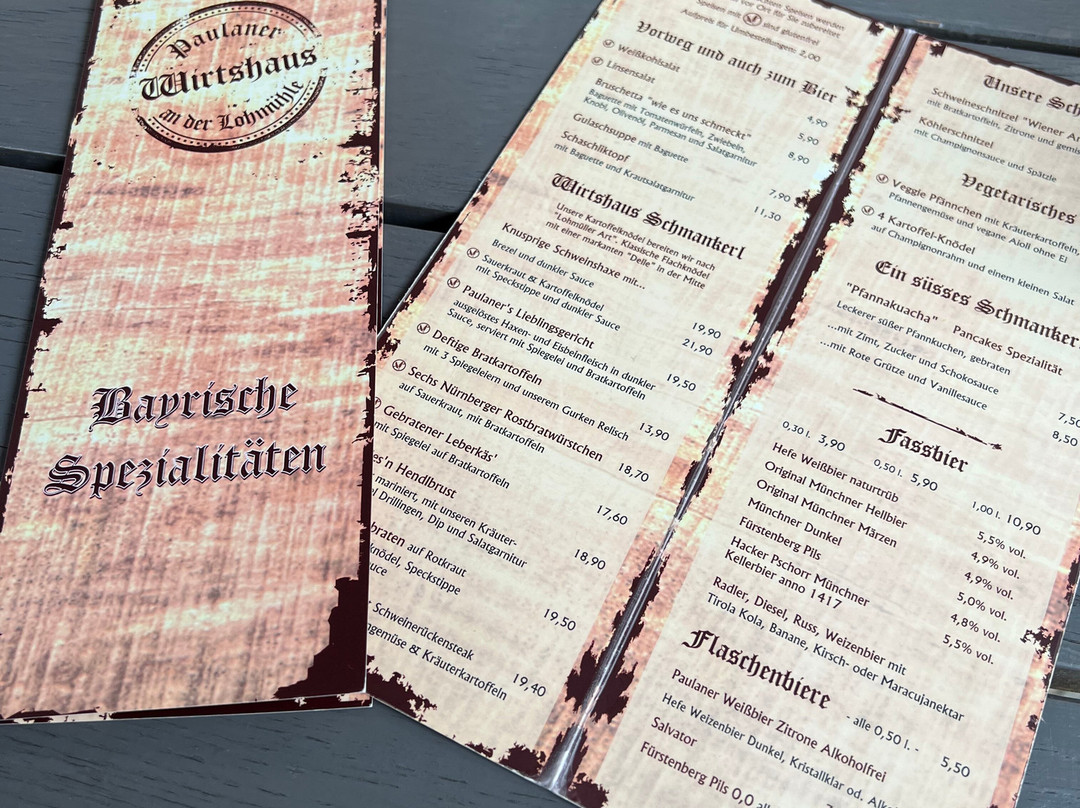 Paulaner
Wirtshaus
an der Lohmühle
Bayrische
Spezialitäten
Speisen werden
vor Ort für Sie zubereitet
Speisen mit sind glutenfrei
Aufpreis für Umbestellungen: 2,00
Vorweg und auch zum Bier
Weißkohlsalat 4,90
Linsensalat 5,90
Bruschetta "wie es uns schmeckt"
Baguette mit Tomatenwürfeln, Zwiebeln,
Knobi, Olivenöl, Parmesan und Salatgarnitur 8,90
Gulaschsuppe mit Baguette 7,90
Schaschliktopf
mit Baguette und Krautsalatgarnitur 11,30
Wirtshaus Schmankerl
Unsere Kartoffelknödel bereiten wir nach
"Lohmüller Art". Klassische Flachknödel
mit einer markanten "Delle" in der Mitte
Knusprige Schweinshaxe mit...
Brezel und dunkler Sauce 19,90
Sauerkraut & Kartoffelknödel
mit Speckstippe und dunkler Sauce 21,90
Paulaner's Lieblingsgericht
ausgelöstes Haxen- und Eisbeinfleisch in dunkler
Sauce, serviert mit Spiegelei und Bratkartoffeln 19,50
Deftige Bratkartoffeln
mit 3 Spiegeleiern und unserem Gurken Relisch 13,90
Sechs Nürnberger Rostbratwürstchen
auf Sauerkraut, mit Bratkartoffeln 18,70
Gebratener Leberkäs'
mit Spiegelei auf Bratkartoffeln 17,60
es'n Hendlbrust
mariniert, mit unseren Kräuter-
Drillingen, Dip und Salatgarnitur 18,90
braten auf Rotkraut
knödel, Speckstippe
19,50
Schweinerückensteak
gemüse & Kräuterkartoffeln 19,40
Unsere Sch
Schweineschnitzel "Wiener Ar
mit Bratkartoffeln, Zitrone und gemi
Köhlerschnitzel
mit Champignonsauce und Spätzle
Vegetarisches
Veggie Pfännchen mit Kräuterkartoffeln,
Pfannengemüse und vegane Aioli ohne Ei
4 Kartoffel-Knödel
auf Champignonrahm und einem kleinen Salat
Ein süsses Schmanker
"Pfannakuacha" Pancakes Spezialität
Leckerer süßer Pfannkuchen, gebraten
...mit Zimt, Zucker und Schokosauce 7,50
...mit Rote Grütze und Vanillesauce 8,50
Fassbier
0,30 l. 3,90 0,50 l. 5,90 1,00 l. 10,90
Hefe Weißbier naturtrüb 5,5% vol.
Original Münchner Hellbier 4,9% vol.
Original Münchner Märzen 4,9% vol.
Münchner Dunkel 5,0% vol.
Fürstenberg Pils 4,8% vol.
Hacker Pschorr Münchner
Kellerbier anno 1417 5,5% vol.
Radler, Diesel, Russ, Weizenbier mit
Tirola Kola, Banane, Kirsch- oder Maracujanektar
Flaschenbiere - alle 0,50 l. - 5,50
Paulaner Weißbier Zitrone Alkoholfrei
Hefe Weizenbier Dunkel, Kristallklar od. Alko
Salvator
Fürstenberg Pils 0,0